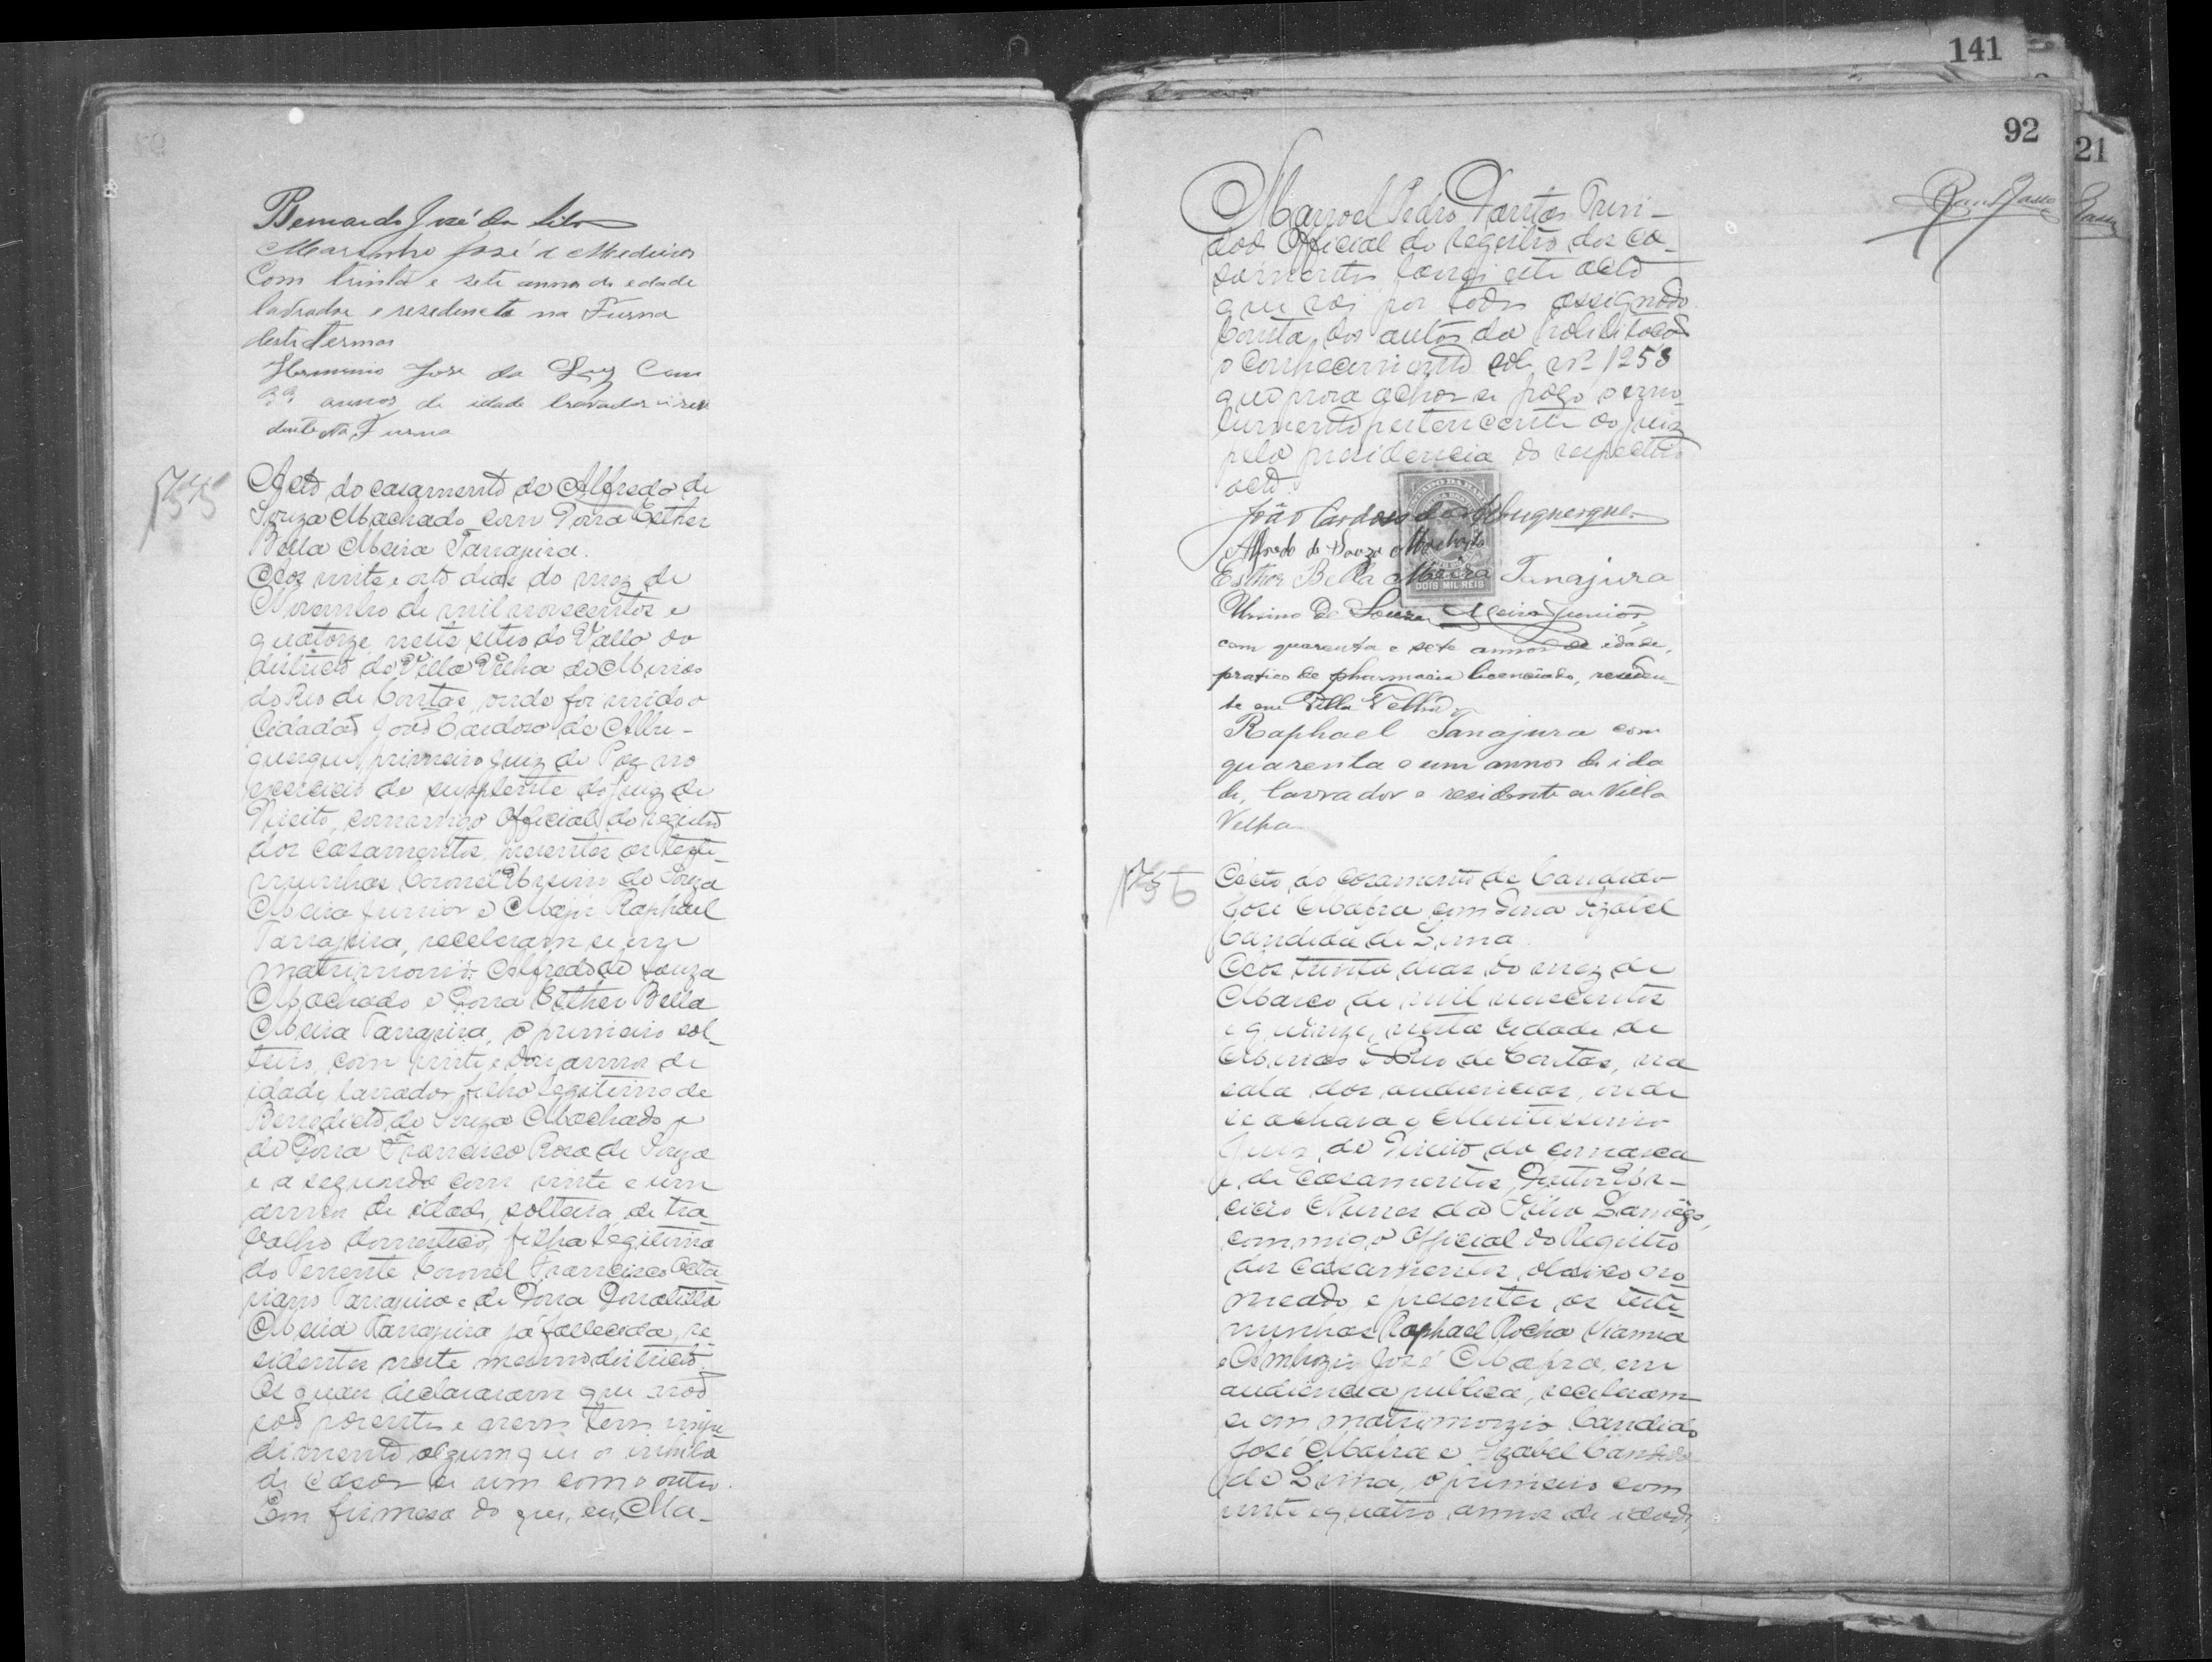 Bernardo José da Silva
Marinho José de Medeiros
Com trinta e sete annos de edade
lavrador e residencte na Furna
deste termos
Herminio Jose da Luz Com
annos de idade lavrador i resi
dente Na Furna
155
Acto do casamento de Alfredo de
Souza Machado com Dona Esther
Bella Meira Tanajura.
Aos vinte e oito dias do mez de
Novembro de mil novecentos e
quatorze, neste sitio do Vallo do
districto de Villa Velha de Minas
do Rio de Contas, onde foi vindo o
Cidadão João Cardoso de Albu-
querque primeiro Juiz de Paz no
exercicio de supplente do Juiz de
Direito, commigo Official do registro
dos casamentos, presentes as teste-
munhas Coronel Ursino de Souza
Meira Junior e Major Raphael
Tanajura, receberam se em
matrimonio: Alfredo de Souza
Machado e Dona Esther Bella
Meira Tanajura, o primeiro sol-
teiro, com vinte e dois annos de
idade, lavrador, filho legitimo de
Benedicto de Souza Machado e
de Dona Francisca Rosa de Souza
e a segunda com vinte e um
annos de idade, solteira, de tra-
balho domestico, filha legitima
do Tenente Coronel Francisco Octa-
viano Tanajura e de Dona
Meira Tanajura já fallecida, re-
sidentes neste mesmo districto.
Os quaes declararam que não
são parentes e nem tem impe-
dimento algum que os inhiba
de casar se um com o outro.
Em firmesa do que, eu, Ma-
141
92
21
Manoel Pedro Dantas Trin-
dade Official do registro dos ca-
samentos, lancei este acto
que vai por todos assignado.
Consta dos autos da habilitação
o conhecimento sob nº 1253
que prova achar-se pago o emo-
lumento pertencente ao juiz
pela presidencia do respectivo
acto.
João Cardoso de Albuquerque
Alfredo de Souza Machado
Esther Bella Meira Tanajura
DOIS MIL REIS
Ursino de Souza Meira Junior,
com quarenta e sete annos de idade,
pratico de pharmacia licenciado, residen-
te em Villa Velha
Raphael Tanajura com
quarenta e um annos de ida
de, lavrador e residente em Villa
Velha
156
Acto do casamento de Candido
José Mafra com Dona Izabel
Candida de Lima.
Aos trinta dias do mez de
Março de mil novecentos
e quinze, nesta cidade de
Minas do Rio de Contas, na
sala das audiencias, onde
se achava o Meritissimo
Juiz de Direito da comarca
e de casamentos, Doutor
Nunes da Silva
commigo Official do Registro
dos casamentos, abaixo no-
meado, e presentes as teste-
munhas Raphael Rocha Vianna
e Ambrozio José Mafra, em
audiencia publica, receberam-
se em matrimonio Candido
José Mafra e Izabel Candida
de Lima, o primeiro com
vinte e quatro annos de idade,